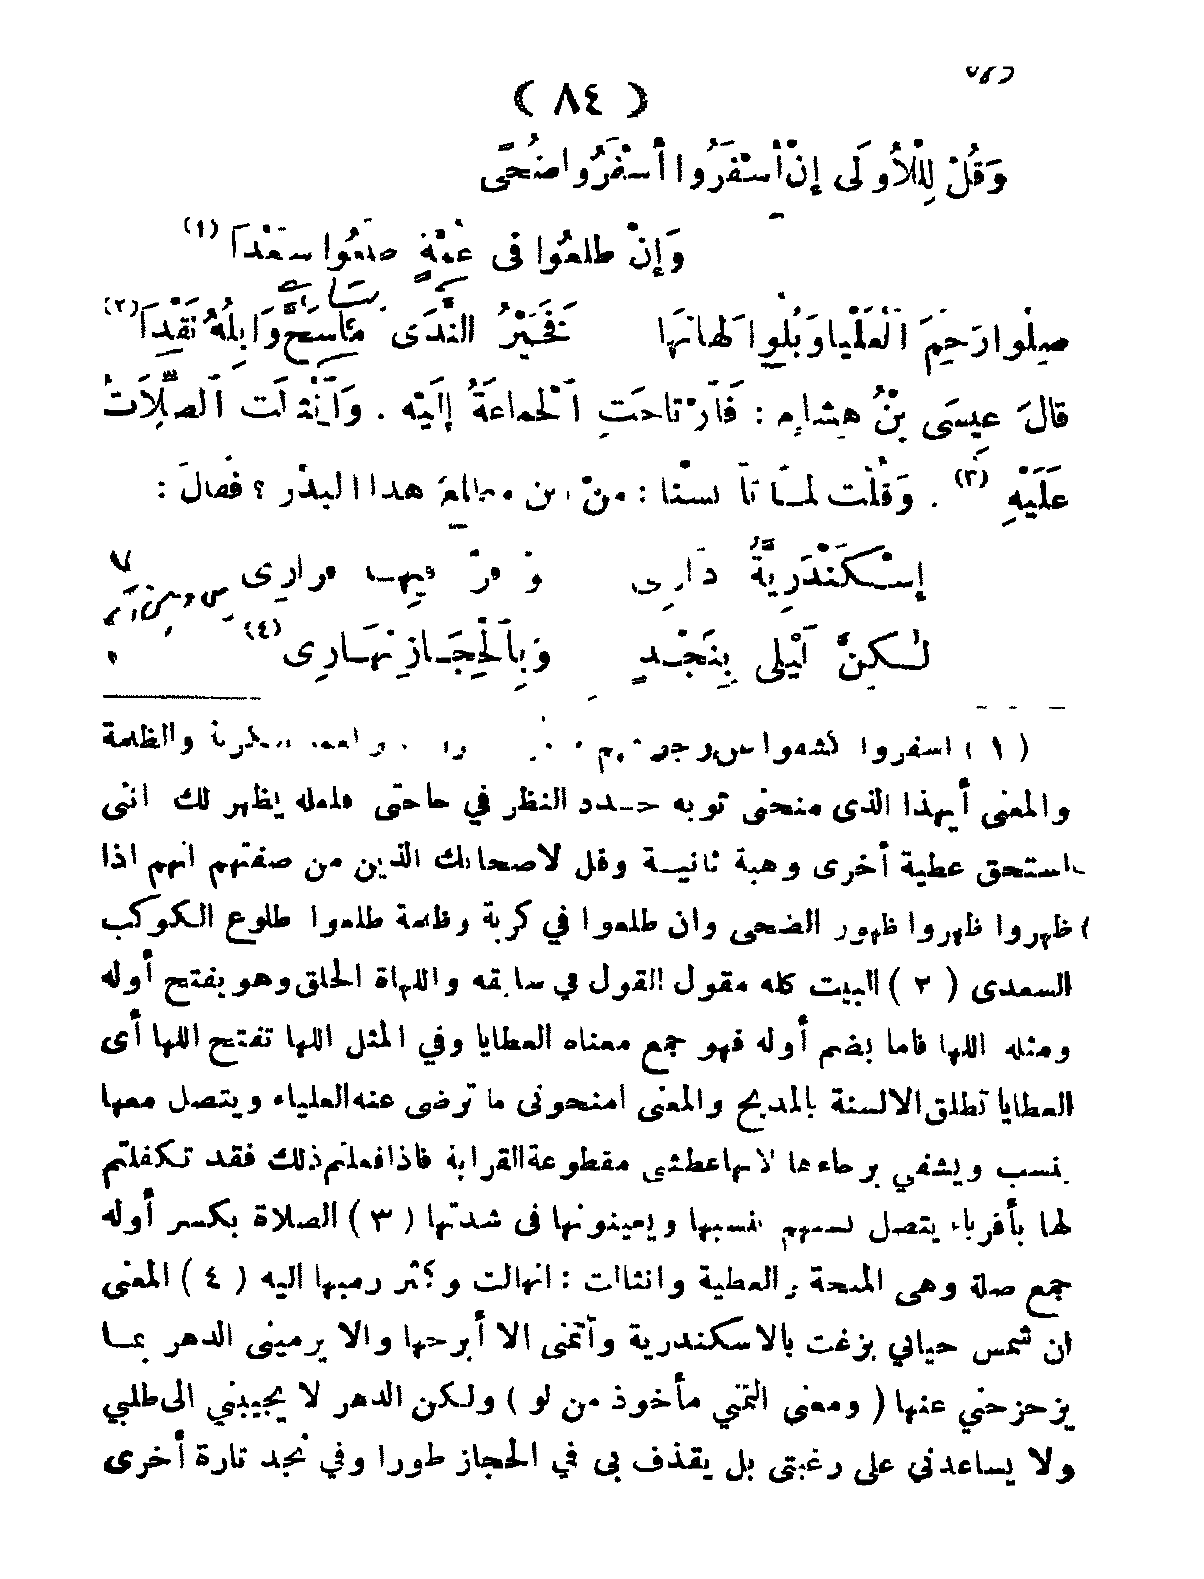 ( ٨٤ )
وَقُلْ لِلْأُولَى إِنْ أَسْفَرُوا أَسْفَرُوا ضُحًى
وَإِنْ طَلَعُوا فِى غُمَّةٍ طَلَعُوا سَعْدَا (١)
صِلُوا رَحِمَ الْعَلْيَا وَبُلُّوا لَهَاتَهَا فَخَيْرُ النَّدَى مَاسَحَّ وَابِلُهُ نَقْدَا (٢)
قَالَ عِيسَى بْنُ هِشَامٍ : فَارْتَاحَتِ الْجَمَاعَةُ إِلَيْهِ . وَانْثَالَت الصِّلَاتُ
عَلَيْهِ (٣) . وَقُلْت لمَّا تَآنَسْنَا : مِنْ أين مطلعُ هذا البدْر ؟ فقالَ :
إِسْكَنْدَرِيَّةُ دَارِى لو قرّ فيها قرارِى
لٰكِنَّ لَيْلِى بِنَجْدٍ وَبِالْحِجَازِ نَهَارِى (٤)
( ١ ) اسفروا كشفوا عن وجوههم والظلمة
والمعنى أيهذا الذى منحنى ثوبه جدد النظر في حاجتى فلعله يظهر لك انى
استحق عطية أخرى وهبة ثانية وقل لاصحابك الذين من صفتهم انهم اذا
ظهروا ظهروا ظهور الضحى وان طلعوا في كربة وظلمة طلعوا طلوع الكوكب
السعدى ( ٢ ) البيت كله مقول القول في سابقه واللهاة الحلق وهو بفتح أوله
ومثله اللها فاما بضم أوله فهو جمع معناه العطايا وفي المثل اللها تفتح اللها أى
العطايا تطلق الالسنة بالمديح والمعنى امنحونى ما ترضى عنه العلياء ويتصل معها
بنسب ويشفي برحاءها لانها عطشى مقطوعة القرابة فاذا فعلتم ذلك فقد تكفلتم
لها بأقرباء يتصل نسبهم بنسبها ويعينونها فى شدتها ( ٣ ) الصلاة بكسر أوله
جمع صلة وهى المنحة والعطية وانثالت : انهالت وكثر رميها اليه ( ٤ ) المعنى
ان شمس حياتي بزغت بالاسكندرية وأتمنى الا أبرحها والا يرمينى الدهر بما
يزحزحني عنها ( ومعنى التمني مأخوذ من لو ) ولكن الدهر لا يجيبني الى طلبي
ولا يساعدني على رغبتى بل يقذف بى في الحجاز طورا وفي نجد تارة أخرى